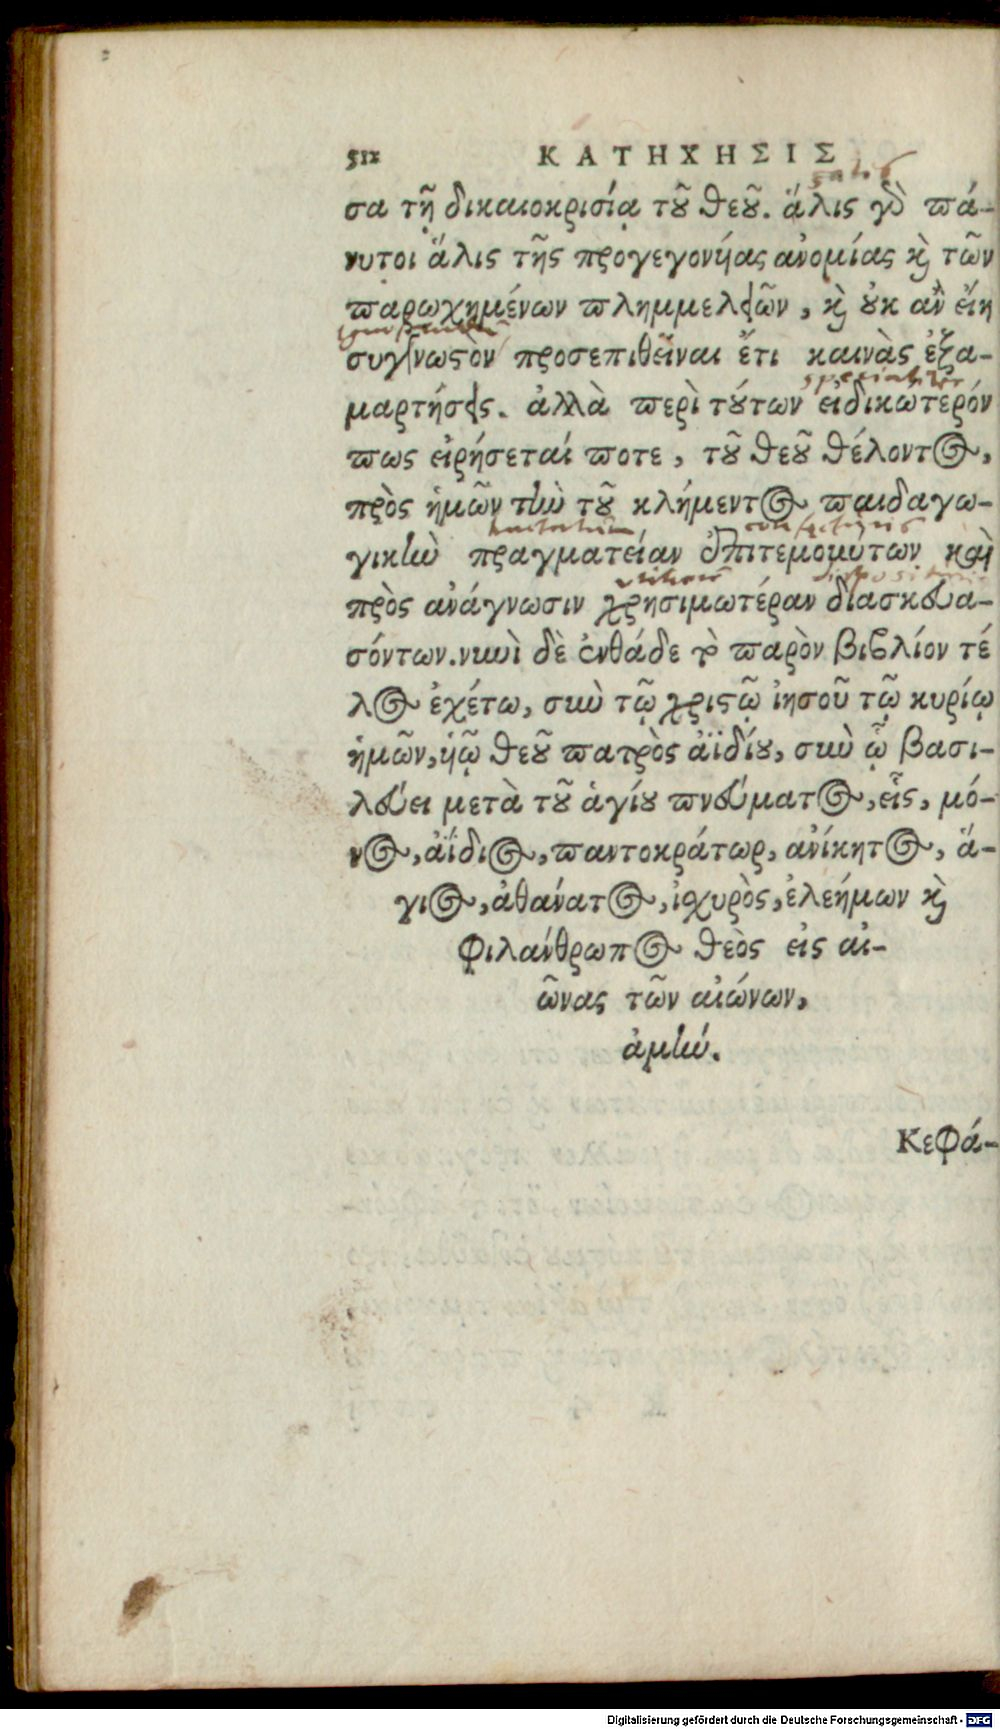 512 ΚΑΤΗΧΗΣΙΣ
satis
σα τῇ δικαιοκρισίᾳ τοῦ θεοῦ. ἅλις γὸ πά-
νυτοι ἅλις τῆς προγεγονυίας ἀνομίας καὶ τῶν
παρῳχημένων πλημμελειῶν, καὶ οὐκ ἂν εἴη
συγγνωστὸν προσεπιθεῖναι ἔτι καινὰς ἐξα-
specialiter
μαρτήσεις. ἀλλὰ περὶ τούτων εἰδικωτερόν
πως εἰρήσεταί ποτε, τοῦ θεοῦ θέλοντος,
πρὸς ἡμῶν τὴν τοῦ κλήμεντος παιδαγω-
γικὴν πραγματείαν ἐπιτεμομένων καὶ
πρὸς ἀνάγνωσιν χρησιμωτέραν διασκευα-
σόντων. νυνὶ δὲ ἐνθάδε τὸ παρὸν βιβλίον τέ
λος ἐχέτω, σὺν τῷ χριστῷ ἰησοῦ τῷ κυρίῳ
ἡμῶν, υἱῷ θεοῦ πατρὸς ἀϊδίου, σὺν ᾧ βασι-
λεύει μετὰ τοῦ ἁγίου πνεύματος, εἷς, μό-
νος, ἀΐδιος, παντοκράτωρ, ἀνίκητος, ἅ-
γιος, ἀθάνατος, ἰσχυρὸς, ἐλεήμων καὶ
φιλάνθρωπος θεὸς εἰς αἰ-
ῶνας τῶν αἰώνων,
ἀμήν.
Κεφά-
Digitalisierung gefördert durch die Deutsche Forschungsgemeinschaft - DFG